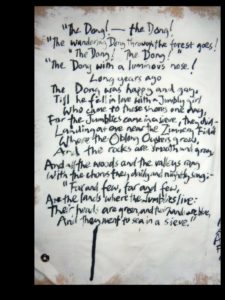 "The Dong! — the Dong!
"The wandering Dong through the forest goes!
"The Dong! The Dong!
"The Dong with a luminous nose!
Long years ago
The Dong was happy and gay,
Till he fell in love with a Jumbly girl
Who came to those shores one day,
For the Jumblies came in a sieve, they did—
Landing at eve near the Zemmery Fidd
Where the Oblong Oysters grow,
And the rocks are smooth and gray.
And all the woods and the valleys rang
With the chorus they daily and nightly sang:
"Far and few, far and few,
Are the lands where the Jumblies live;
Their heads are green, and their hands are blue,
And they went to sea in a sieve."